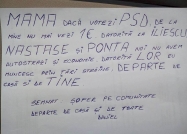 MAMA DACĂ VOTEZI PSD, DE LA
MINE NU MAI VEZI 1€ DATORITĂ LUI ILIESCU
NASTASE ȘI PONTA NOI NU AVEM
AUTOSTRĂZI ȘI ECONOMIE DATORITĂ LOR EU
MUNCESC PRIN ȚĂRI STRĂINE, DEPARTE DE
CASĂ ȘI DE TINE.
SEMNAT ȘOFER PE COMUNITATE
DEPARTE DE CASĂ ȘI DE TOATE